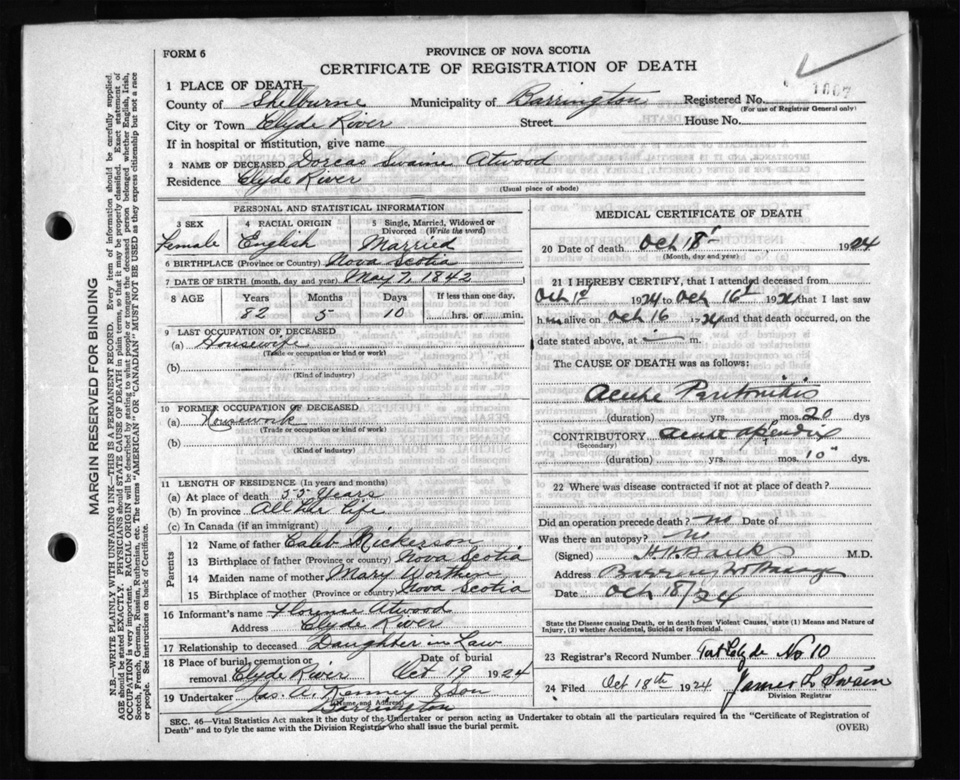 FORM 6
PROVINCE OF NOVA SCOTIA
CERTIFICATE OF REGISTRATION OF DEATH
1867
1 PLACE OF DEATH—
County of Shelburne Municipality of Barrington Registered No.
(For use of Registrar General only)
City or Town Clyde River Street House No.
If in hospital or institution, give name
2 NAME OF DECEASED Dorcas Swaine Atwood
Residence Clyde River
(Usual place of abode)
PERSONAL AND STATISTICAL INFORMATION
3 SEX 4 RACIAL ORIGIN 5 Single, Married, Widowed or Divorced (Write the word)
Female English Married
6 BIRTHPLACE (Province or Country) Nova Scotia
7 DATE OF BIRTH (month, day and year) May 7, 1842
8 AGE Years Months Days If less than one day,
82 5 10 hrs. or min.
9 LAST OCCUPATION OF DECEASED
(a) Housewife
(Trade or occupation or kind or work)
(b)
(Kind of industry)
10 FORMER OCCUPATION OF DECEASED
(a) Housework
(Trade or occupation or kind or work)
(b)
(Kind of industry)
11 LENGTH OF RESIDENCE (In years and months)
(a) At place of death 55 Years
(b) In province All her life
(c) In Canada (if an immigrant)
Parents
12 Name of father Caleb Nickerson
13 Birthplace of father (Province or country) Nova Scotia
14 Maiden name of mother Mary Worthen
15 Birthplace of mother (Province or country) Nova Scotia
16 Informant's name Florence Atwood
Address Clyde River
17 Relationship to deceased Daughter in Law
18 Place of burial, cremation or removal Clyde River Date of burial Oct 19 1924
19 Undertaker Jas. A. Kenney & Son
(Name and Address)
Barrington
MEDICAL CERTIFICATE OF DEATH
20 Date of death Oct 18th 1924
(Month, day and year)
21 I HEREBY CERTIFY, that I attended deceased from
Oct 1st 1924 to Oct 16th 1924 that I last saw
h alive on Oct 16 1924 and that death occurred, on
date stated above, at m.
The CAUSE OF DEATH was as follows:
Acute Peritonitis
(duration) yrs. mos. 20 dys
CONTRIBUTORY acute apendix
(Secondary)
(duration) yrs. mos. 10 dys.
22 Where was disease contracted if not at place of death?
Did an operation precede death? no Date of
Was there an autopsy? no
(Signed) M.D.
Address Barrington Passage
Date Oct 18/24
State the Disease causing Death, or in death from Violent Causes, state (1) Means and Nature of
Injury, (2) whether Accidental, Suicidal or Homicidal.
23 Registrar's Record Number Clyde No 10
24 Filed Oct 18th 1924 James L Swain
Division Registrar
SEC. 46—Vital Statistics Act makes it the duty of the Undertaker or person acting as Undertaker to obtain all the particulars required in the "Certificate of Registration of
Death" and to fyle the same with the Division Registrar who shall issue the burial permit.
(OVER)
MARGIN RESERVED FOR BINDING
N.B.—WRITE PLAINLY WITH UNFADING INK—THIS IS A PERMANENT RECORD. Every item of information should be carefully supplied.
AGE should be stated EXACTLY. PHYSICIANS should STATE CAUSE OF DEATH in plain terms, so that it may be properly classified. Exact statement of
OCCUPATION is very important. RACIAL ORIGIN will be described by stating to what people or tribe the deceased person belonged, whether English, Irish,
Scotch, French, German, Russian, Ruthenian, etc. The terms "AMERICAN" OR "CANADIAN" MUST NOT BE USED as they express citizenship but not a race
or people. See instructions on back of Certificate.